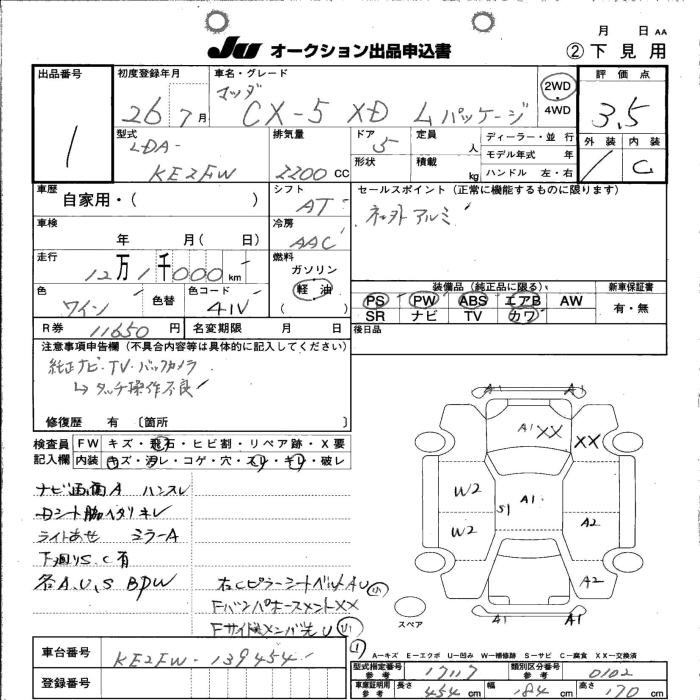 JU オークション出品申込書
月 日 AA
② 下見用
出品番号 1
初度登録年月 26年 7月
車名・グレード マツダ CX-5 XD Lパッケージ
2WD 4WD
評価点 3.5
外装 内装 C
型式 LDA- KE2FW
排気量 2200 CC
ドア 5
定員 人
ディーラー・並 行
モデル年式 年
形状
積載 kg
ハンドル 左・右
車歴 自家用・( )
シフト AT
セールスポイント (正常に機能するものに限ります)
社外アルミ
車検 年 月( 日)
冷房 AAC
走行 12万1千000km
燃料 ガソリン 軽油 ( )
色 ワイン 色替
色コード 41V
装備品(純正品に限る) 新車保証書
PS PW ABS エアB AW 有・無
SR ナビ TV カワ
R券 11650円
名変期限 月 日
後日品
注意事項申告欄(不具合内容等は具体的に記入してください)
純正ナビ・TV・バックカメラ
↳タッチ操作不良
修復歴 有 〔箇所 〕
検査員記入欄
FW キズ・飛石・ヒビ割・リペア跡・X要
内装 キズ・汚レ・コゲ・穴・スレ・キレ・破レ
ナビ画面A ハンスレ
ライトあせ ミラーA
下廻りS.C有
各A.U.S BPW
右Cピラーシートベルト AU
FバンパホースメントXX
Fサイドメンバ先U
A1 A1
A1 XX XX
W2 S1 A1
W2 A2
A2
A1 A1
スペア
A-キズ E-エクボ U-凹み W-補修跡 S-サビ C-腐食 XX-交換済
車台番号 KE2FW-139454
型式指定番号 参考 17117
類別区分番号 参考 0102
登録番号
車庫証明用 参考 長さ 454cm 幅 184cm 高さ 170cm